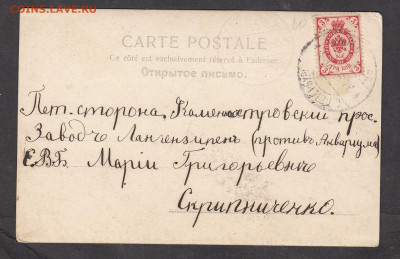 СОИНС.LAVE.RU
CARTE POSTALE
Ce côté est exclusivement réservé à l'adresse.
Открытое письмо.
Пет. сторона, Каменноостровский прос.
Заводъ Лангензипенъ (противъ Аквариума)
Е.В.Б. Маріи Григорьевнѣ
Скрипниченко.